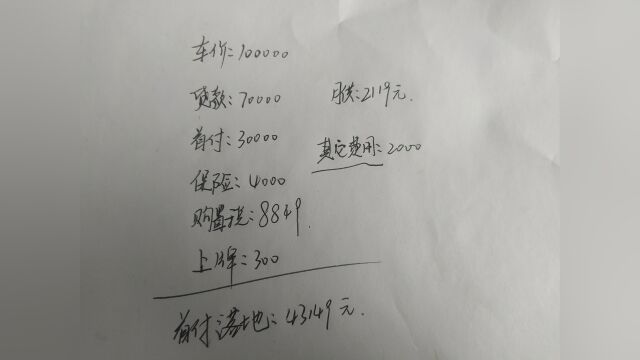 车价:100000
贷款:70000
月供:2119元.
首付:30000
其它费用:2000
保险:4000
购置税:8849.
上牌:300
首付落地:43149元.